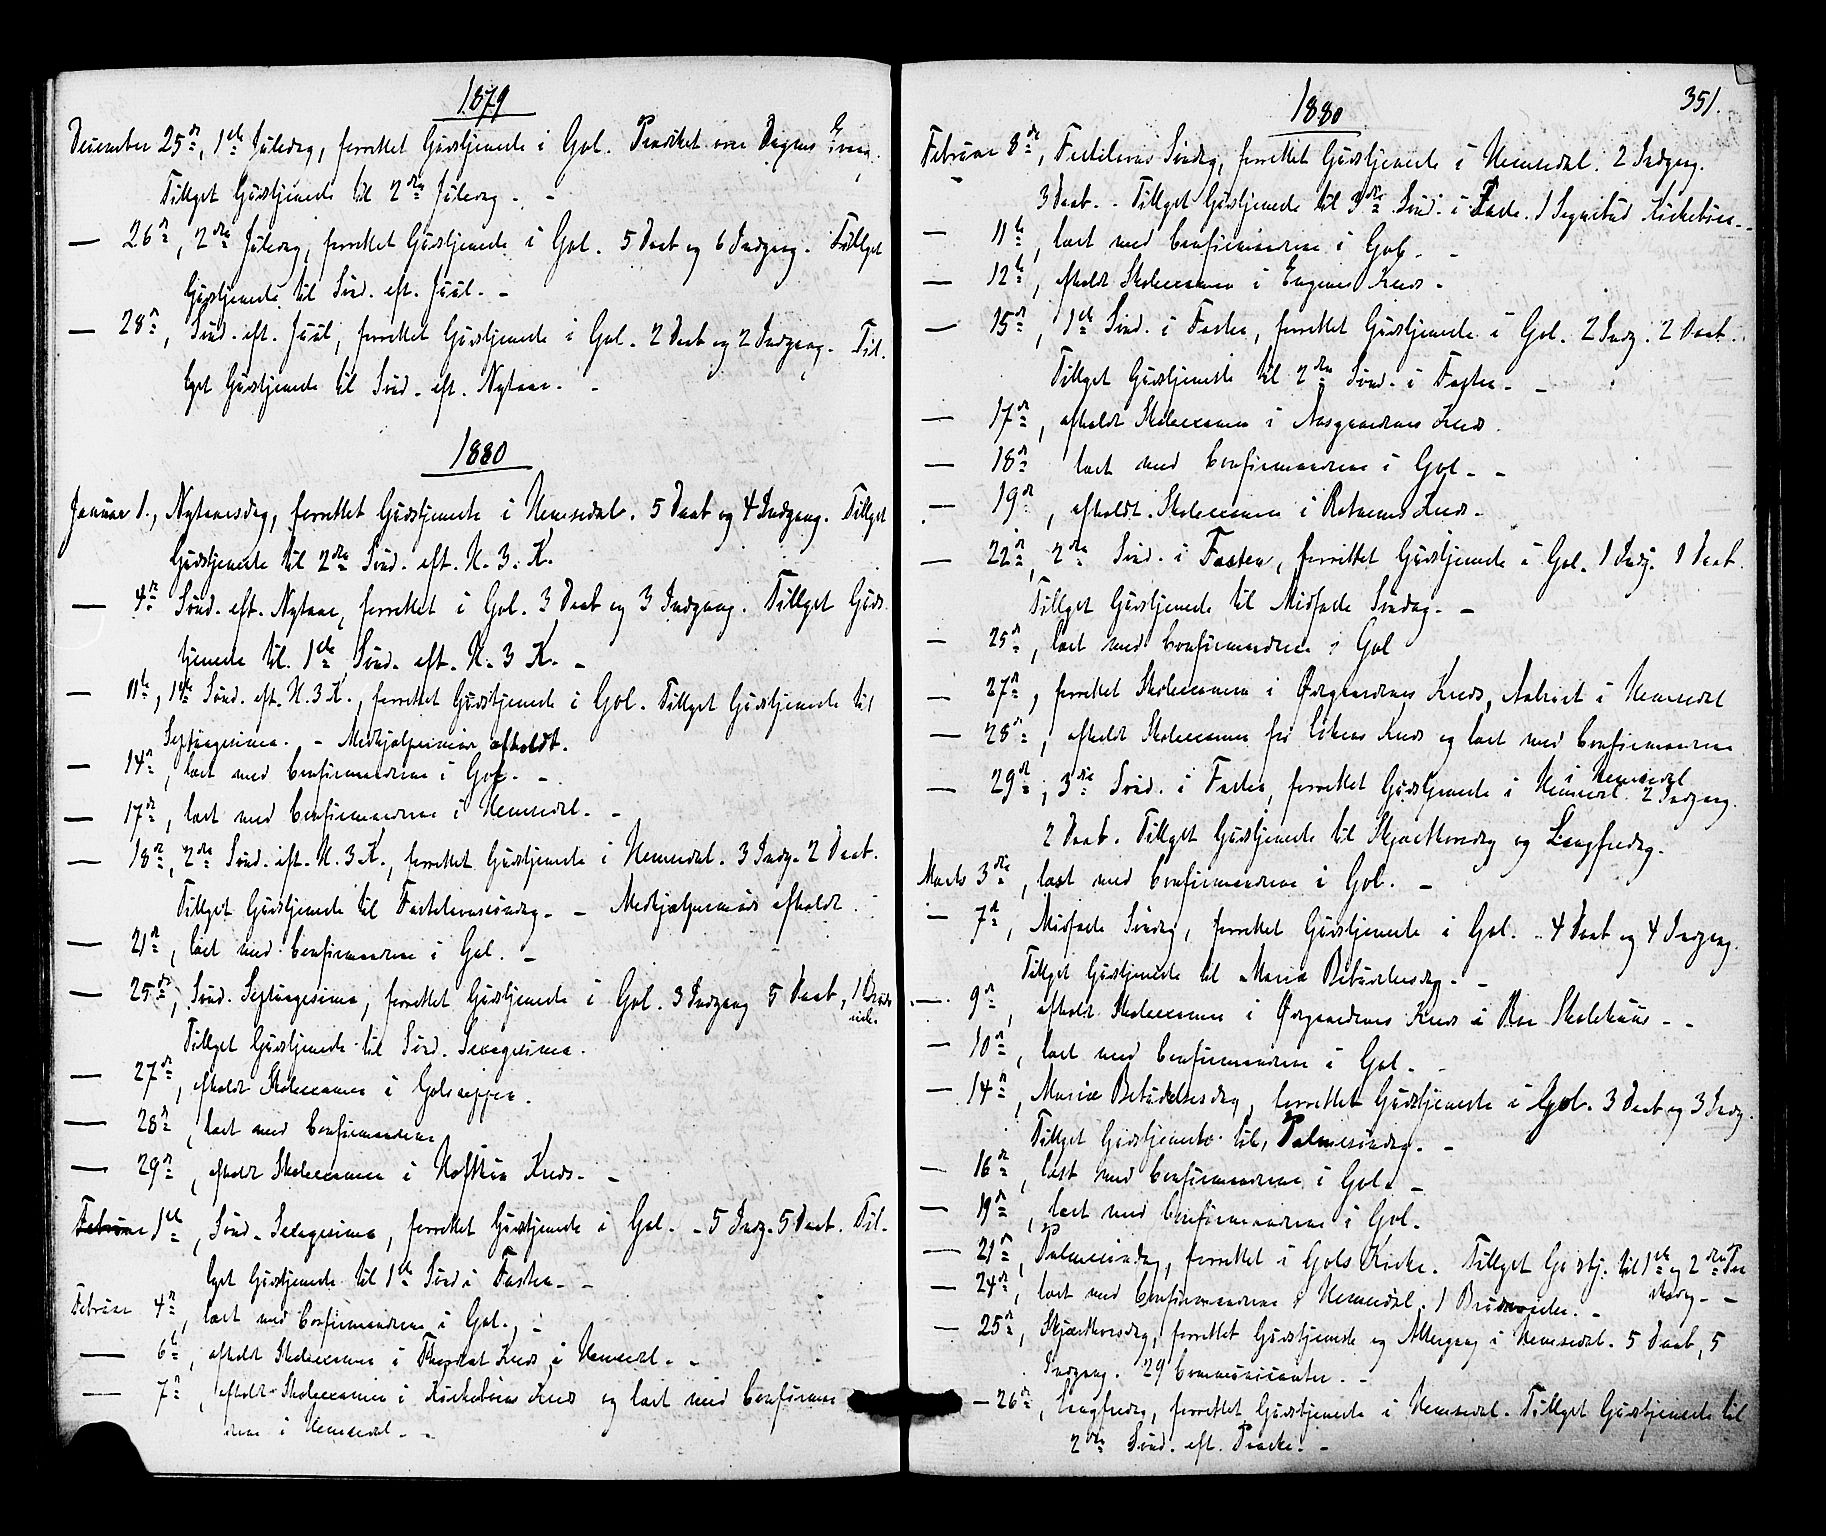 1879
December 25de, 1ste Juledag, forrettet Gudstjeneste i Gol. Prædiket over Dagens Evang.
Tillyst Gudstjeneste til 2den Juledag. -
— 26de, 2den Juledag, forrettet Gudstjeneste i Gol. 5 Daab og 6 Indgang. Tillyst
Gudstjeneste til Sønd. eft. Juul. -
— 28de, Sønd. eft. Juul, forrettet Gudstjeneste i Gol. 2 Daab og 2 Indgang. Til-
lyst Gudstjeneste til Sønd. eft. Nytaar. -
1880
Januar 1., Nytaarsdag, forrettet Gudstjeneste i Hemsedal. 5 Daab og 4 Indgang. Tillyst
Gudstjeneste til 2den Sønd. eft. H. 3. K.
— 4de Sønd. eft. Nytaar, forrettet i Gol. 3 Daab og 3 Indgang. Tillyst Guds-
tjeneste til 1ste Sønd. eft. H. 3 K. -
— 11te, 1ste Sønd. eft. H. 3 K., forrettet Gudstjeneste i Gol. Tillyst Gudstjeneste til
Septuagesima. - Medhjælpermøde afholdt.
— 14de, læst med Confirmanderne i Gol. -
— 17de, læst med Confirmanderne i Hemsedal. -
— 18de, 2den Sønd. eft. H. 3 K., forrettet Gudstjeneste i Hemsedal. 3 Indg. 2 Daab.
Tillyst Gudstjeneste til Fastelavnssøndag. - Medhjælpermøde afholdt.
— 21de, læst med Confirmanderne i Gol. -
— 25de, Sønd. Septuagesima, forrettet Gudstjeneste i Gol. 3 Indgang 5 Daab, 1 Brude
vielse.
Tillyst Gudstjeneste til Sønd. Sexagesima.
— 27de, afholdt Skoleexamen i Golreppen.
— 28de, læst med Confirmanderne
— 29de, afholdt Skoleexamen i Kreds. -
Februar 1ste, Sønd. Sexagesima, forrettet Gudstjeneste i Gol. - 5 Indg. 5 Daab. Til-
lyst Gudstjeneste til 1ste Sønd i Fasten. -
Februar 4de, læst med Confirmanderne i Gol. -
— 6te, afholdt Skoleexamen i Kreds i Hemsedal. -
— 7de, afholdt Skoleexamen i Kirkebøens Kreds og læst med Confirman-
derne i Hemsedal. -
351.
1880
Februar 8de, Fastelavns Søndag, forrettet Gudstjeneste i Hemsedal. 2 Indgang.
3 Daab. - Tillyst Gudstjeneste til 3die Sønd. i Faste. 1
— 11te, læst med Confirmanderne i Gol. -
— 12te, afholdt Skoleexamen i Engenes Kreds.
— 15de, 1ste Sønd. i Fasten, forrettet Gudstjeneste i Gol. 2 Indg. 2 Daab.
Tillyst Gudstjeneste til 2den Sønd. i Fasten. -
— 17de, afholdt Skoleexamen i Aasgaardenes Kreds.
— 18de læst med Confirmanderne i Gol. -
— 19de, afholdt Skoleexamen i Rotnems Kreds.
— 22de, 2den Sønd. i Fasten, forrettet Gudstjeneste i Gol. 1 Indg. 1 Daab.
Tillyst Gudstjeneste til Midfaste Søndag. -
— 25de, læst med Confirmanderne i Gol
— 27de, forrettet Skoleexamen i Øvgaardenes Kreds, i Hemsedal
— 28de, afholdt Skoleexamen for Kreds og læst med Confirmanderne
i Hemsedal
— 29de, 3die Sønd. i Fasten, forrettet Gudstjeneste i Hemsedal. 2 Indgang.
2 Daab. Tillyst Gudstjeneste til Skjærthorsdag og Langfredag.
Marts 3die, læst med Confirmanderne i Gol. -
— 7de, Midfaste Søndag, forrettet Gudstjeneste i Gol. 4 Daab og 4 Indgang.
Tillyst Gudstjeneste til Mariæ Bebudelsesdag. -
— 9de, afholdt Skoleexamen i Øvgaardenes Kreds i Skolehuus. -
— 10de, læst med Confirmanderne i Gol. -
— 14de, Mariæ Bebudelsesdag, forrettet Gudstjeneste i Gol. 3 Daab og 3 Indg.
Tillyst Gudstjeneste til Palmesøndag. -
— 16de, læst med Confirmanderne i Gol. -
— 19de, læst med Confirmanderne i Gol.
— 21de, Palmesøndag, forrettet i Gols Kirke. Tillyst Gudstj. til 1ste og 2den Paa
skedag. -
— 24de, læst med Confirmanderne i Hemsedal. 1 Brudevielse. -
— 25de, Skjærthorsdag, forrettet Gudstjeneste og Altergang i Hemsedal. 5 Daab, 5
Indgang. 29 Communicanter. -
— 26de, Langfredag, forrettet Gudstjeneste i Hemsedal. Tillyst Gudstjeneste til
2den Sønd. eft. Paaske. -